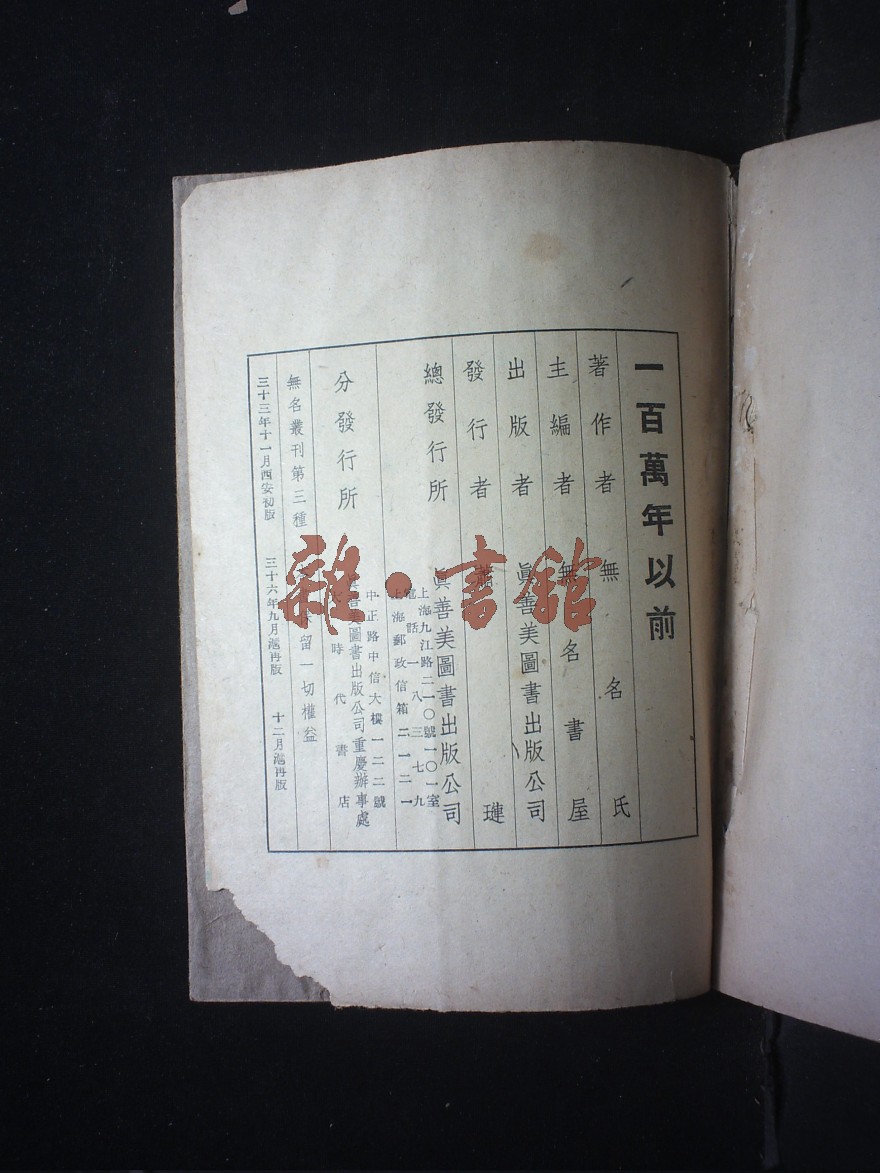 一百萬年以前
著作者 無名氏
主編者 無名書屋
出版者 眞善美圖書出版公司
發行者 蕭璉
總發行所 眞善美圖書出版公司
上海九江路二一〇號一〇一室
電話一八三七九
上海郵政信箱二一二一
分發行所
中正路中信大樓一二二號
眞善美圖書出版公司重慶辦事處
時代書店
無名叢刊第三種 留一切權益
三十三年十一月西安初版 三十六年九月滬再版 十二月滬再版
雜·書館